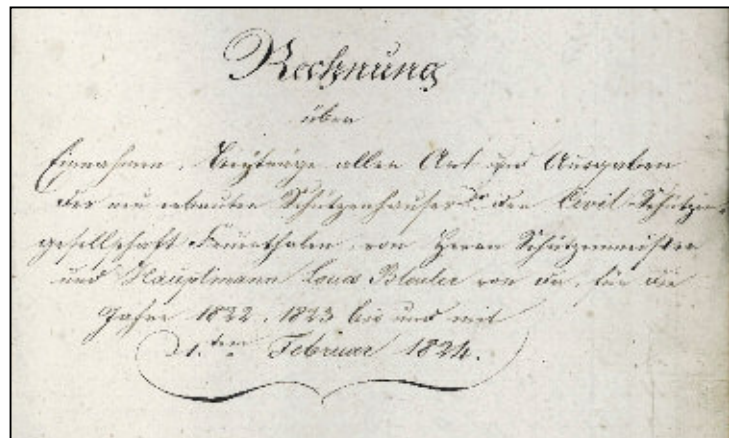 Rechnung
über
Einnahmen, Beyträge aller Art und Ausgaben
der neu erbauten Schützenhauses der Civil-Schützen-
gesellschaft Feuerthalen, von Herrn Schützenmeister
und Hauptmann Blauler von da, für die
Jahre 1822. 1823 bis und mit
1.ten Februar 1824.